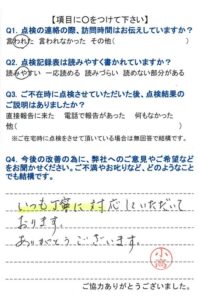 【項目に○をつけて下さい】
Q1. 点検の連絡の際、訪問時間はお伝えしていますか?
言われた 言われなかった その他( )
Q2. 点検記録表は読みやすく書かれていますか?
読みやすい 一応読める 読みづらい 読めない部分がある
Q3. ご不在時に点検させていただいた後、点検結果の
ご説明はありましたか?
直接報告に来た 電話で報告があった 何もなかった
他( )
※ご在宅時に点検をさせて頂いている場合は無回答で結構です。
Q4. 今後の改善の為に、弊社へのご意見やご希望などを
お聞かせください。ご不満やお叱りなど、どのようなこと
でも結構です。
いつも丁寧に対応していただいて
おります。
ありがとうございます。
小高
ご協力ありがとうございました。